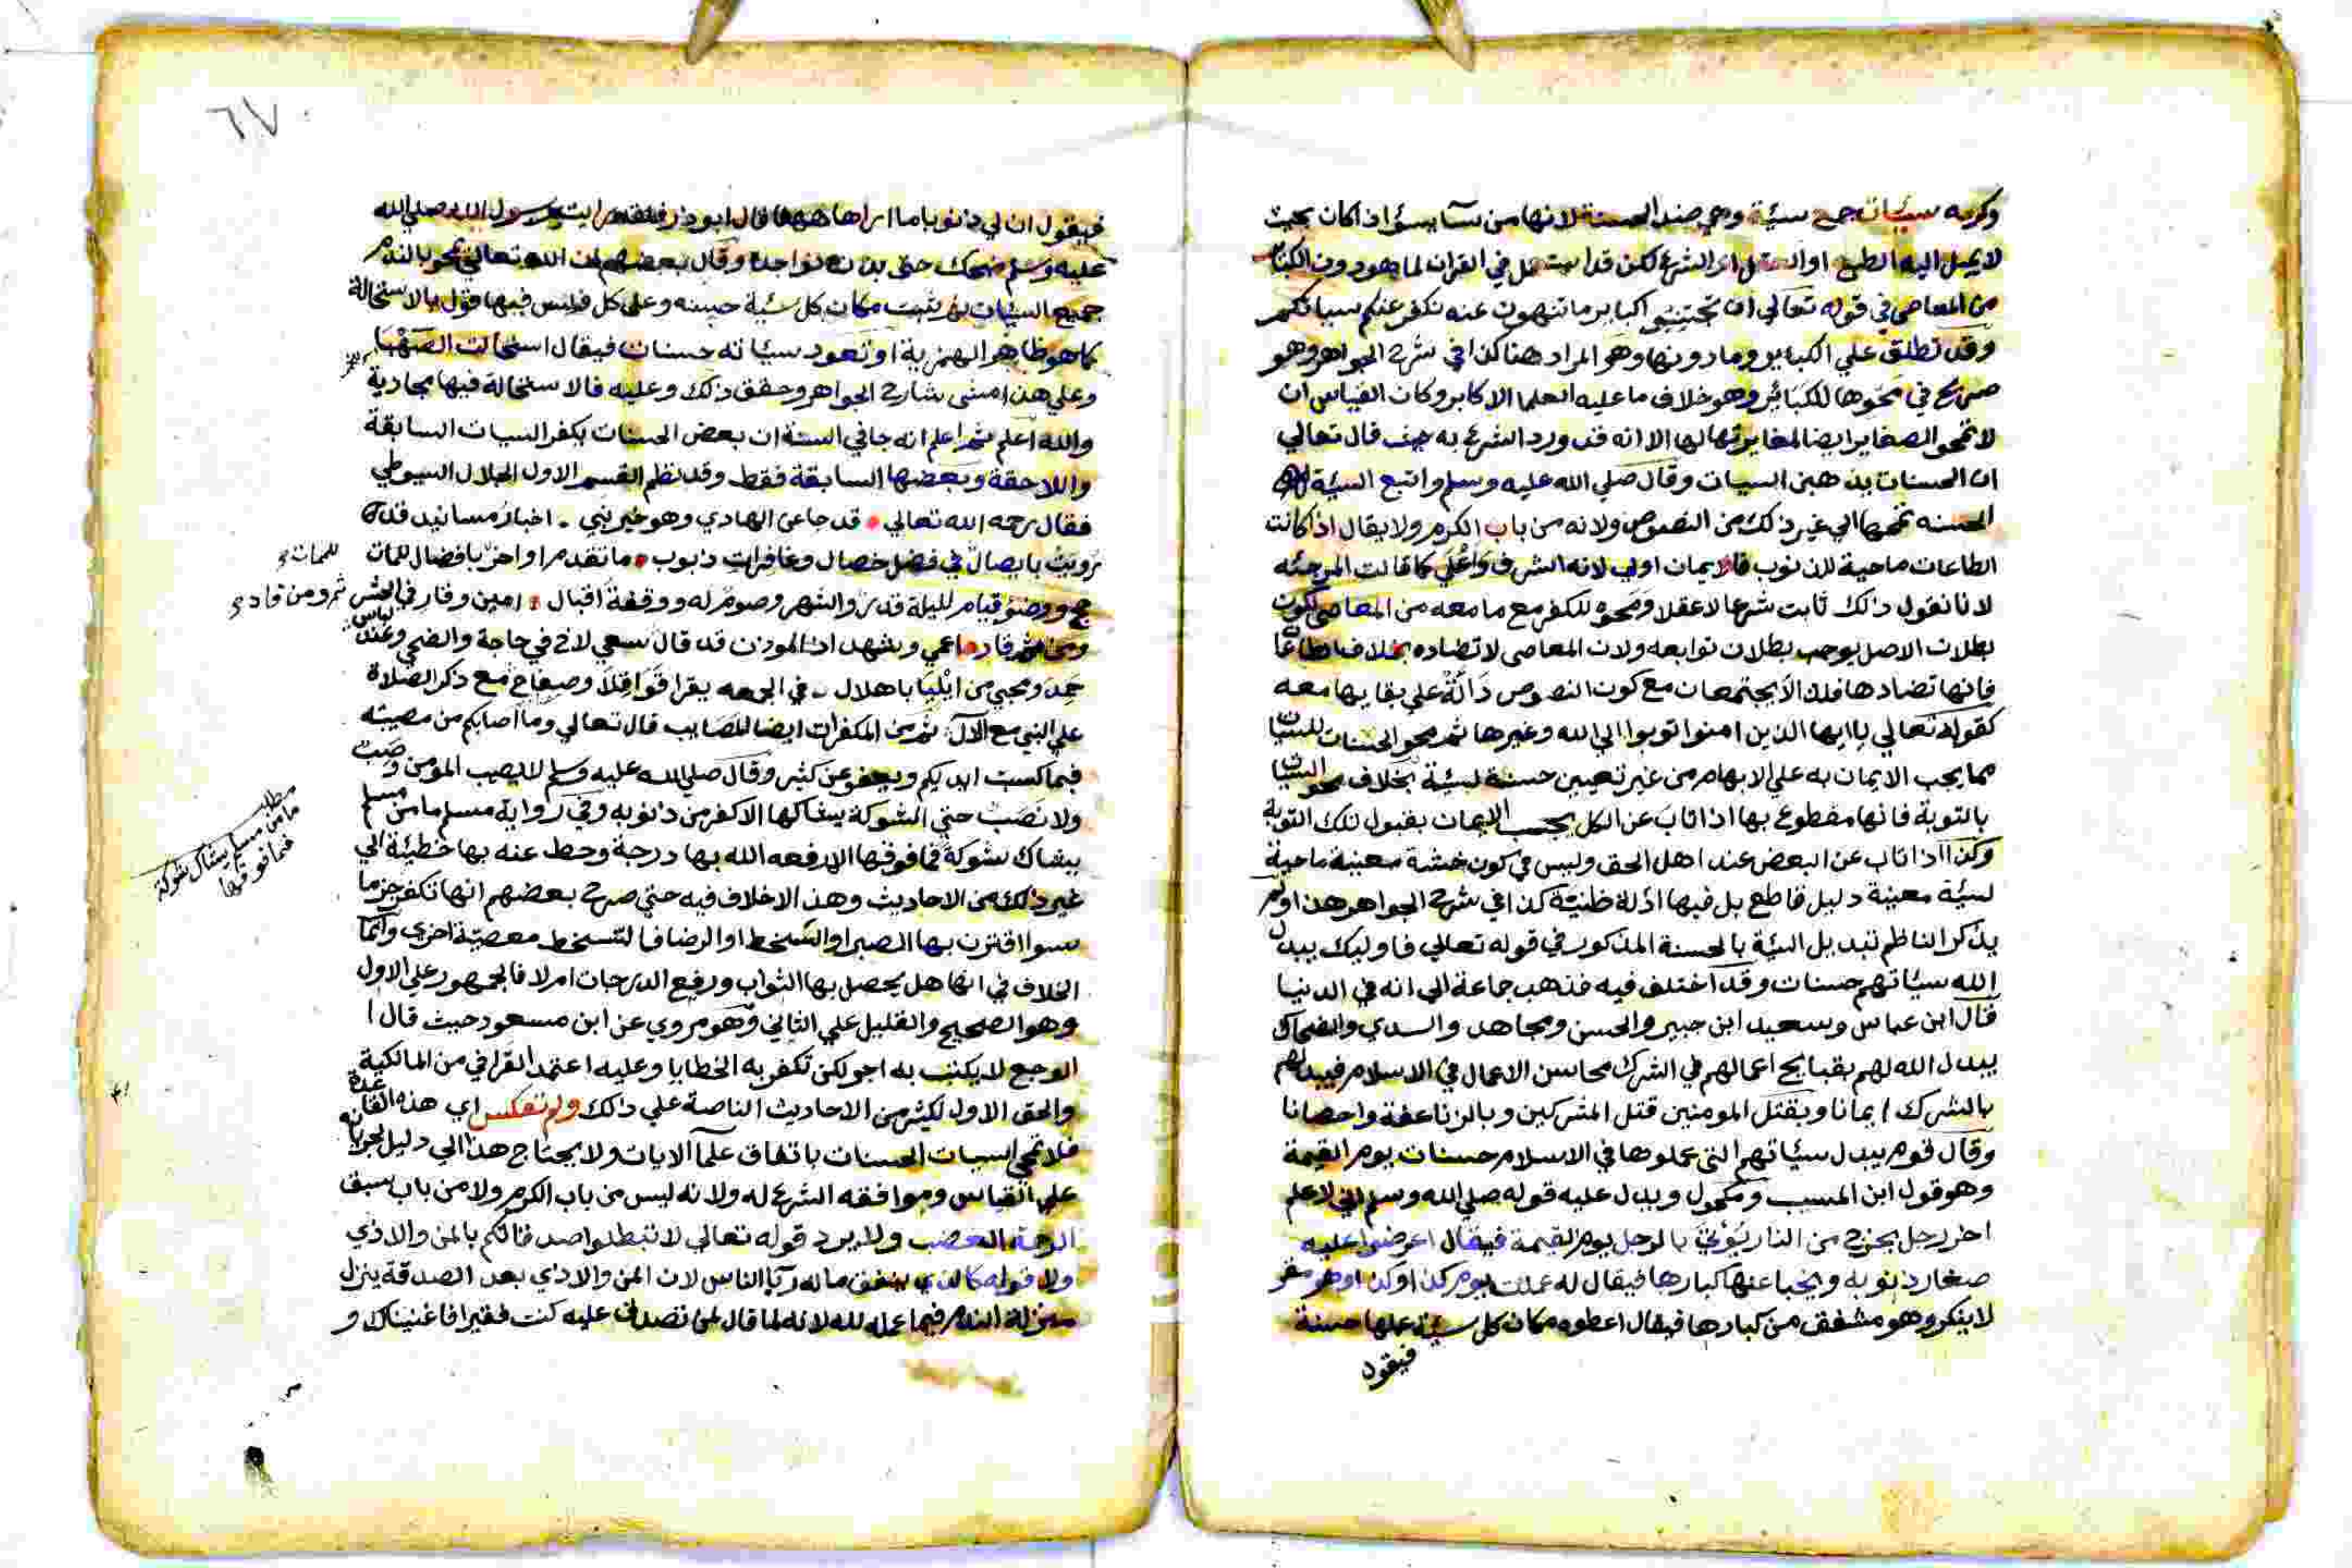 وكربه سيئات جمع سيئة وهي ضد الحسنة لانها من ساء يسؤ اذا كان بحيث
لا يميل اليه الطبع او العقل او الشرع لكن قد استعمل في القران لما هو دون الكبائر
من المعاصي في قوله تعالي ان تجتنبوا كباير ما تنهون عنه نكفر عنكم سياتكم
وقد تطلق علي الكباير وما دونها وهو المراد هنا كذا في شرح الجواهر وهو
صريح في محوها للكبائر وهو خلاف ما عليه العلما الاكابر وكان القياس ان
لا تمحو الصغاير ايضا لمغايرتها لها الا انه قد ورد الشرع به حيث قال تعالي
ان الحسنات يذهبن السيات وقال صلي الله عليه وسلم واتبع السيئة
الحسنه تمحها الي غير ذلك من النصوص ولانه من باب الكرم ولا يقال اذا كانت
الطاعات ماحية للذنوب فالايمان اولي لانه اشرف واعلي كما قالت المرجئه
لانا نقول ذلك ثابت شرعا لا عقلا ومحوه للكفر مع ما معه من المعاصي لكون
بطلان الاصل يوجب بطلان توابعه ولان المعاصي لا تضاده بخلاف الطاعات
فانها تضادها فلذا لا يجتمعان مع كون النصوص دالة علي بقايها معه
كقوله تعالي يا ايها الذين امنوا توبوا الي الله وغيرها ثم محو الحسنات للسيات
مما يجب الايمان به علي الابهام من غير تعيين حسنة لسيئة بخلاف محو السيات
بالتوبة فانها مقطوع بها اذا تاب عن الكل يجب الايمان بقبول تلك التوبة
وكذا اذا تاب عن البعض عند اهل الحق وليس في كون حسنة معينة ماحية
لسيئة معينة دليل قاطع بل فيها ادلة ظنية كذا في شرح الجواهر هذا ولم
يذكر الناظم تبديل السئة بالحسنة المذكور في قوله تعالي فاوليك يبدل
الله سيئاتهم حسنات وقد اختلف فيه فذهب جماعة الي انه في الدنيا
قال ابن عباس وسعيد ابن جبير والحسن ومجاهد والسدي والضحاك
يبدل الله لهم بقبايح اعمالهم في الشرك محاسن الاعمال في الاسلام فيبدلهم
بالشرك ايمانا وبقتل المومنين قتل المشركين وبالزنا عفة واحصانا
وقال قوم يبدل سيئاتهم التي عملوها في الاسلام حسنات يوم القيمة
وهو قول ابن المسيب ومكحول ويدل عليه قوله صلي الله وسلم اني لاعلم
اخر رجل يخرج من النار يؤتي بالرجل يوم القيمة فيقال اعرضوا عليه
صغار ذنوبه ويخبا عنها كبارها فيقال له عملت يوم كذا وكذا وهو مقر
لا ينكر وهو مشفق من كبارها فيقال اعطوه مكان كل سيئة عملها حسنة
فيقول
٦٧
فيقول ان لي ذنوبا ما اراها ههنا قال ابو ذر فلقد رايت رسول الله صلي الله
عليه وسلم ضحك حتي بدت نواجذه وقال بعضهم ان الله تعالي يمحو بالندم
جميع السيات ثم يثبت مكان كل سئية حسنه وعلي كل فليس فيها قول بالاستحالة
كما هو ظاهر الهمزية او تعود سيئاته حسنات فيقال استحالت الصهباء
وعلي هذا مشي شارح الجواهر وحقق ذلك وعليه فالاستحالة فيها مجازية
والله اعلم ثم اعلم انه جا في السنة ان بعض الحسنات يكفر السيات السابقة
واللاحقة وبعضها السابقة فقط وقد نظم القسم الاول الجلال السيوطي
فقال رحمه الله تعالي قد جا عن الهادي وهو خير نبي اخبار مسانيد قد
رويت بايصال في فضل خصال وغافرات ذنوب ما تقدم او اخر بافضال للمات
حج ووضوء قيام لليلة قدر والشهر وصوم له ووقفة اقبال امين وقار في الحشر ثم ومن قاد
اعمي وشهيد اذا الموذن قد قال سعي لاخ في حاجة والضحي وعند لباس
حمد ومجي من ايليا باهلال في الجمعه يقرا قواقلا وصفاح مع ذكر الصلاة
علي النبي مع الال ثم من المكفرات ايضا المصايب قال تعالي وما اصابكم من مصيبة
فبما كسبت ايديكم ويعفو عن كثير وقال صلي الله عليه وسلم لا يصيب المؤمن وصب
ولا نصب حتي الشوكة يشاكها الا كفر من ذنوبه وفي رواية مسلم ما من مسلم
يشاك بشوكة فما فوقها الا رفعه الله بها درجة وحط عنه بها خطيئة الي
غير ذلك من الاحاديث وهذا لا خلاف فيه حتي صرح بعضهم انها تكفر جزما
سوا اقترن بها الصبر او التسخط او الرضا فالتسخط معصية اخري وانما
الخلاف في انها هل يحصل بها الثواب ورفع الدرجات ام لا فالجمهور علي الاول
وهو الصحيح والقليل علي الثاني وهو مروي عن ابن مسعود حيث قال
الوجع لا يكتب به اجر لكن تكفر به الخطايا وعليه اعتمد القرافي من المالكية
والحق الاول لكثير من الاحاديث الناصة علي ذلك ولم تنعكس اي هذه القاعدة
فلا تمحي السيات الحسنات باتفاق علما الايات ولا يحتاج هذا الي دليل لجريانه
علي القياس وموافقه الشرع له ولانه ليس من باب الكرم ولا من باب سبق
الرحمة الغضب ولا يرد قوله تعالي لا تبطلوا صدقاتكم بالمن والاذي
ولا قوله كالذي ينفق ماله ريا الناس لان المن والاذي بعد الصدقة ينزل
منزلة الندم فيما عمله لله لانه لما قال لمن تصدق عليه كنت فقيرا فاغنيناك و
للمات
مطلب
ما من مسلم يشاك بشوكة
فما فوقها